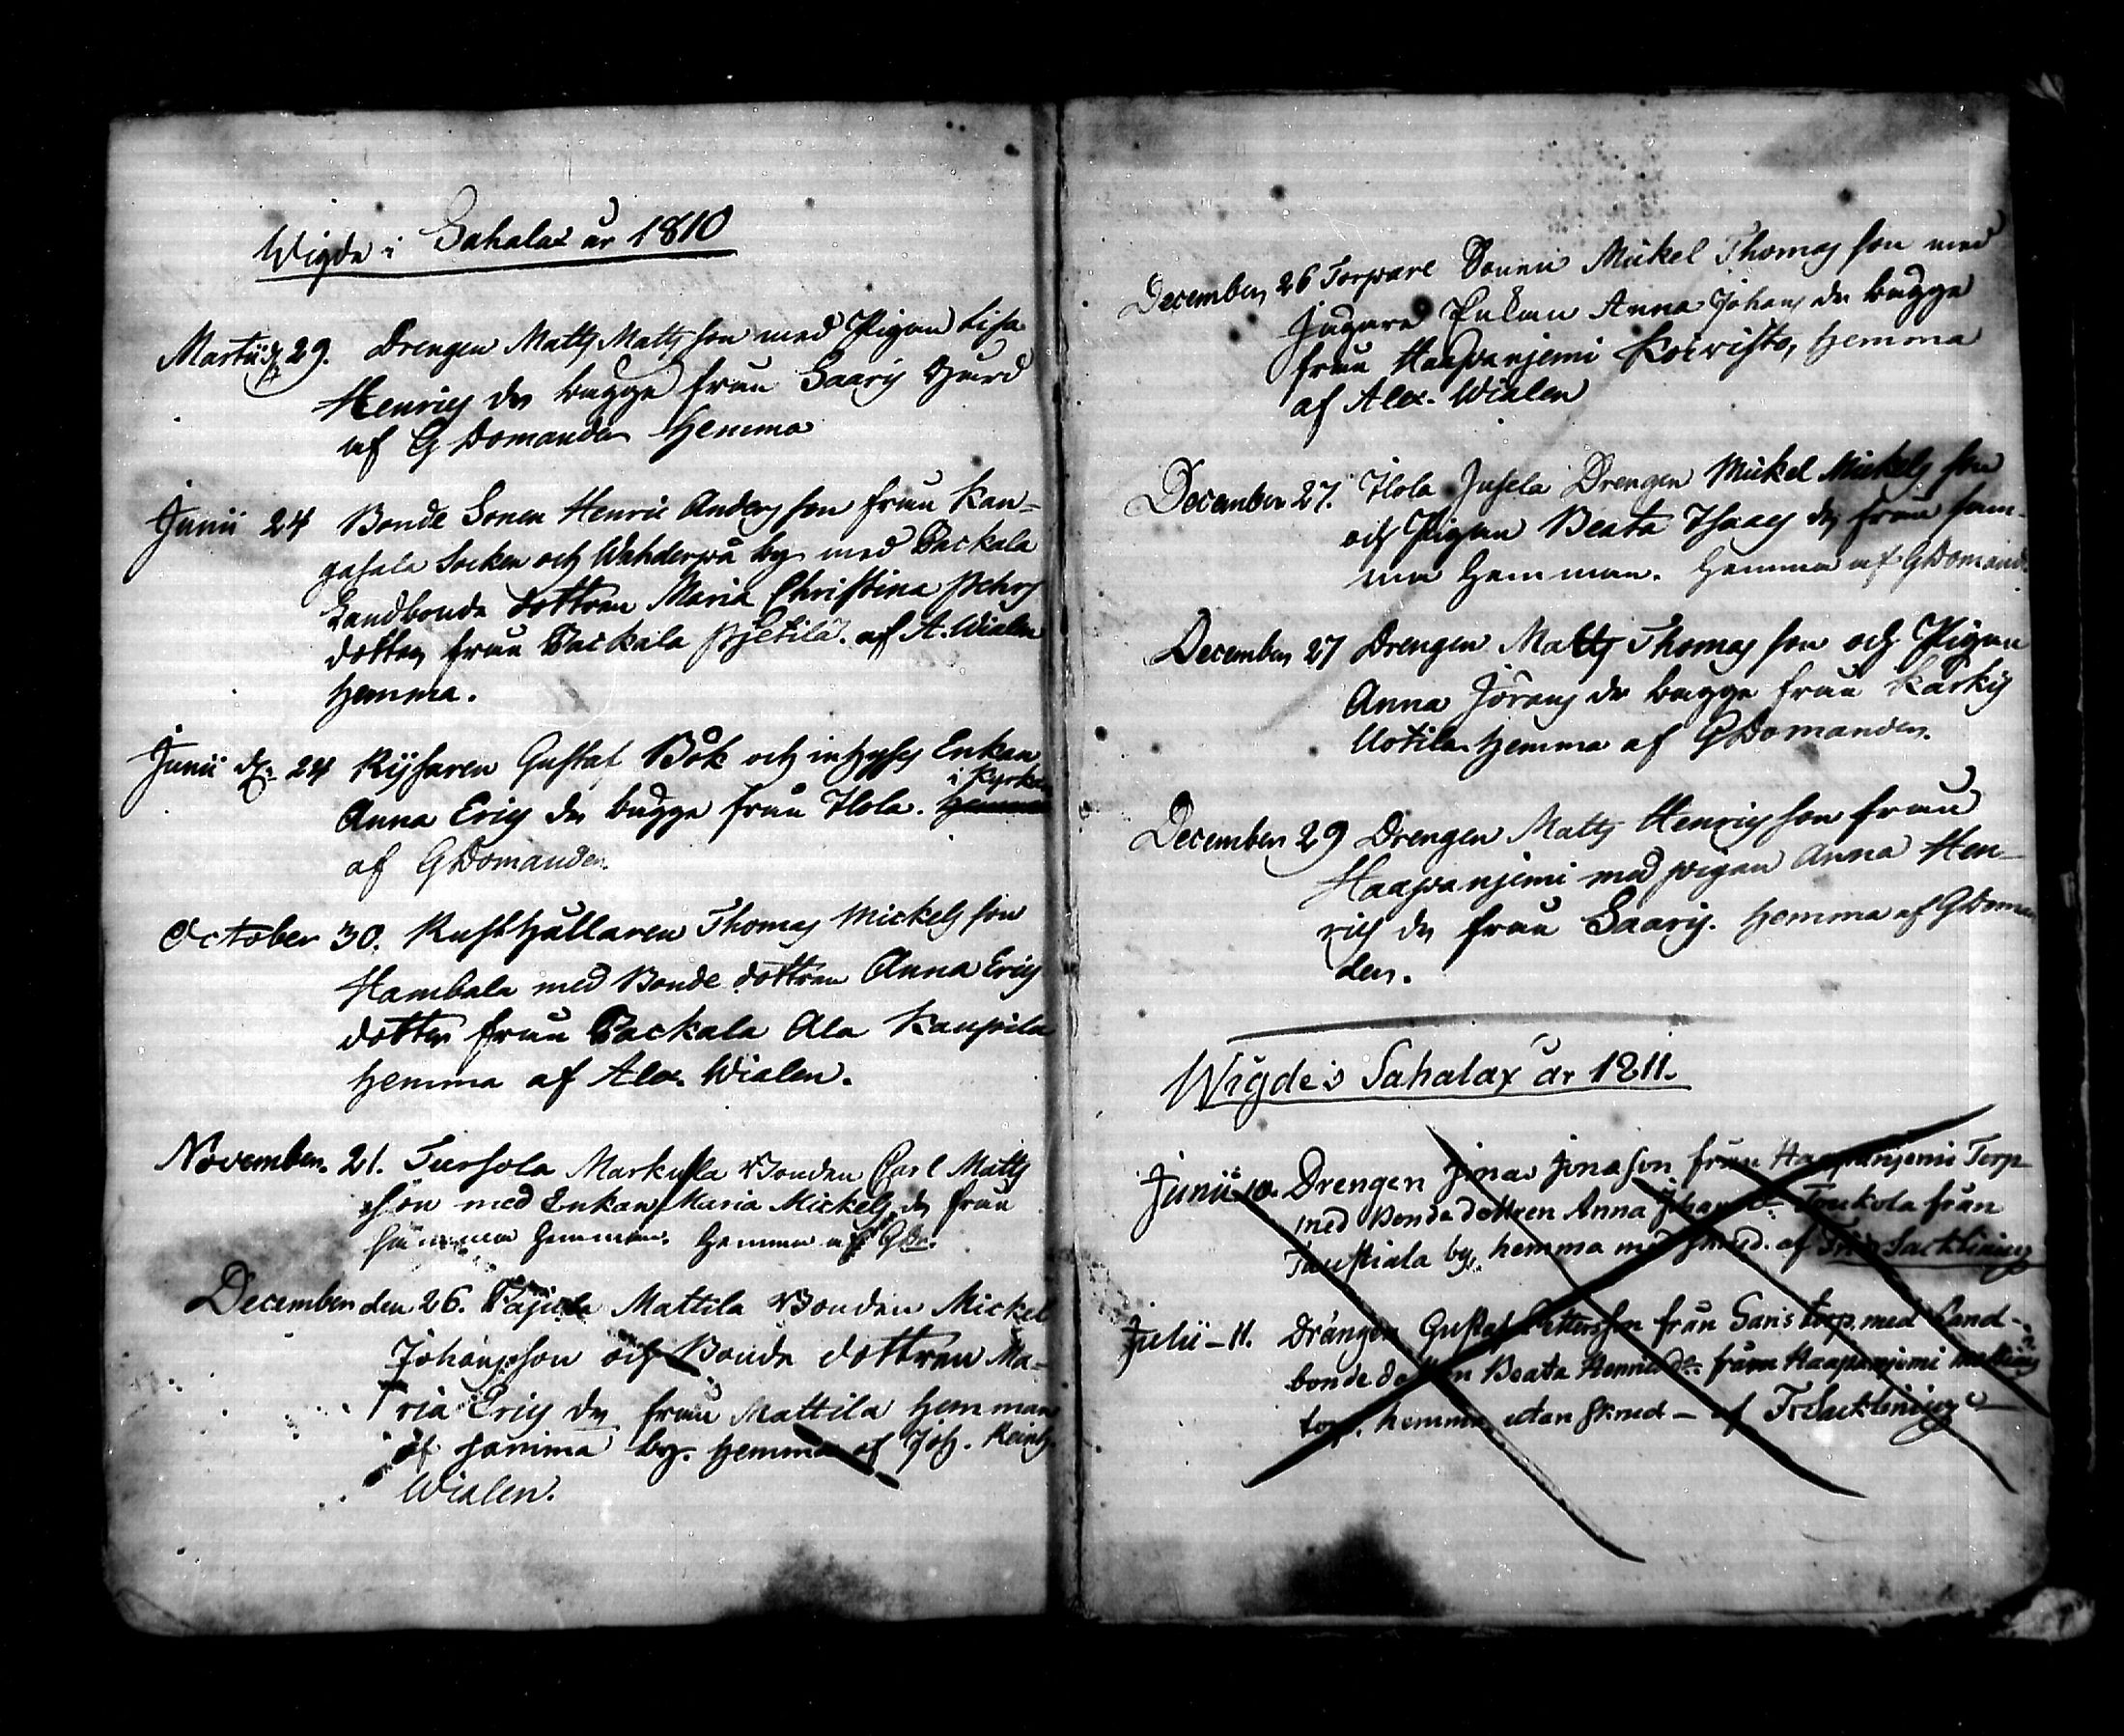 Wigde i Sahalax år 1810
Martii d. 29. Drengen Matts Mattsson med Pigan Lisa
Henrics dr bägge från Saaris Gård
af G Domander Hemma
Junii 24 Bonde Sonen Henric Anders son från Kan-
gasala Socken och Wehderpå by med Packala
Landbonde dottren Maria Christina Pehrs
dotter från Packala Pjetilä. af A. Wialen
hemma.
Junii d. 24 Ryssaren Gustaf Bök och inhyses Enkan
i Kyrkan
Anna Erics dr bägge från Ilola. Hemma
af G Domander.
October 30. Rusthållaren Thomas Mickels son
Hambala med Bonde dottren Anna Erics
dotter från Packala Ala Kaupila
hemma af Alex. Wialen.
November. 21. Tursola Markula Bonden Carl Matts
son med Enkan Maria Mickels dr från
samma Hemman. Hemma af GDr.
December den 26. Mattila Bonden Mickel
Johansson och Bonde dottren Ma-
ria Erics dr från Mattila hemman
af samma by. hemma af Joh. Reinh.
Wialen.
December 26 Torpare Sonen Mickel Thomas son med
Enkan Anna Johans dr bägge
från Haapaniemi Koivisto, hemma
af Alex. Wialen
December 27. Ilola Jusela Drengen Mickel Mickels son
och Pigan Beata Isaacs dr från sam-
ma Hemman. Hemma af GDomand.
December 27 Drengen Matts Thomas son och Pigan
Anna Jörans dr bägge från Kärkis
Uotila. hemma af GDomander.
December 29 Drengen Matts Henrics son från
Haapaniemi med pigan Anna Hen-
rics dr från Saaris. hemma af GDoman
der.
Wigde i Sahalax år 1811.
Junii 10. Drengen Jonas Jonasson från Haapaniemi Torp
med Bonde dottren Anna Johans dr från
Taustiala by, hemma med skrud. af Sacklinius
Julii - 11. Drängen Gustaf Pettersson från Saris torp. med Land-
bonde dottren Beata Henrics dr från Haapaniemi
torp. hemma, utan skrud - af Fr Sacklinius